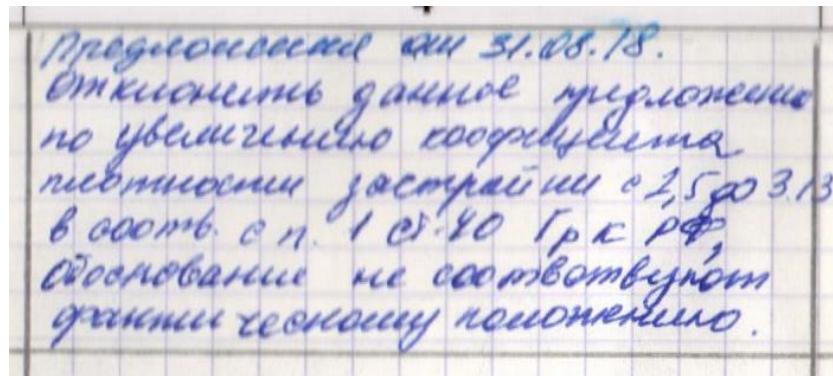 Предложения от 31.08.18.
Отклонить данное предложение
по увеличению коофициента
плотности застройки с 2,5 до 3.13
в соотв. с п. 1 ст. 40 Гр К РФ,
обоснования не соответвуют
фактическому положению.